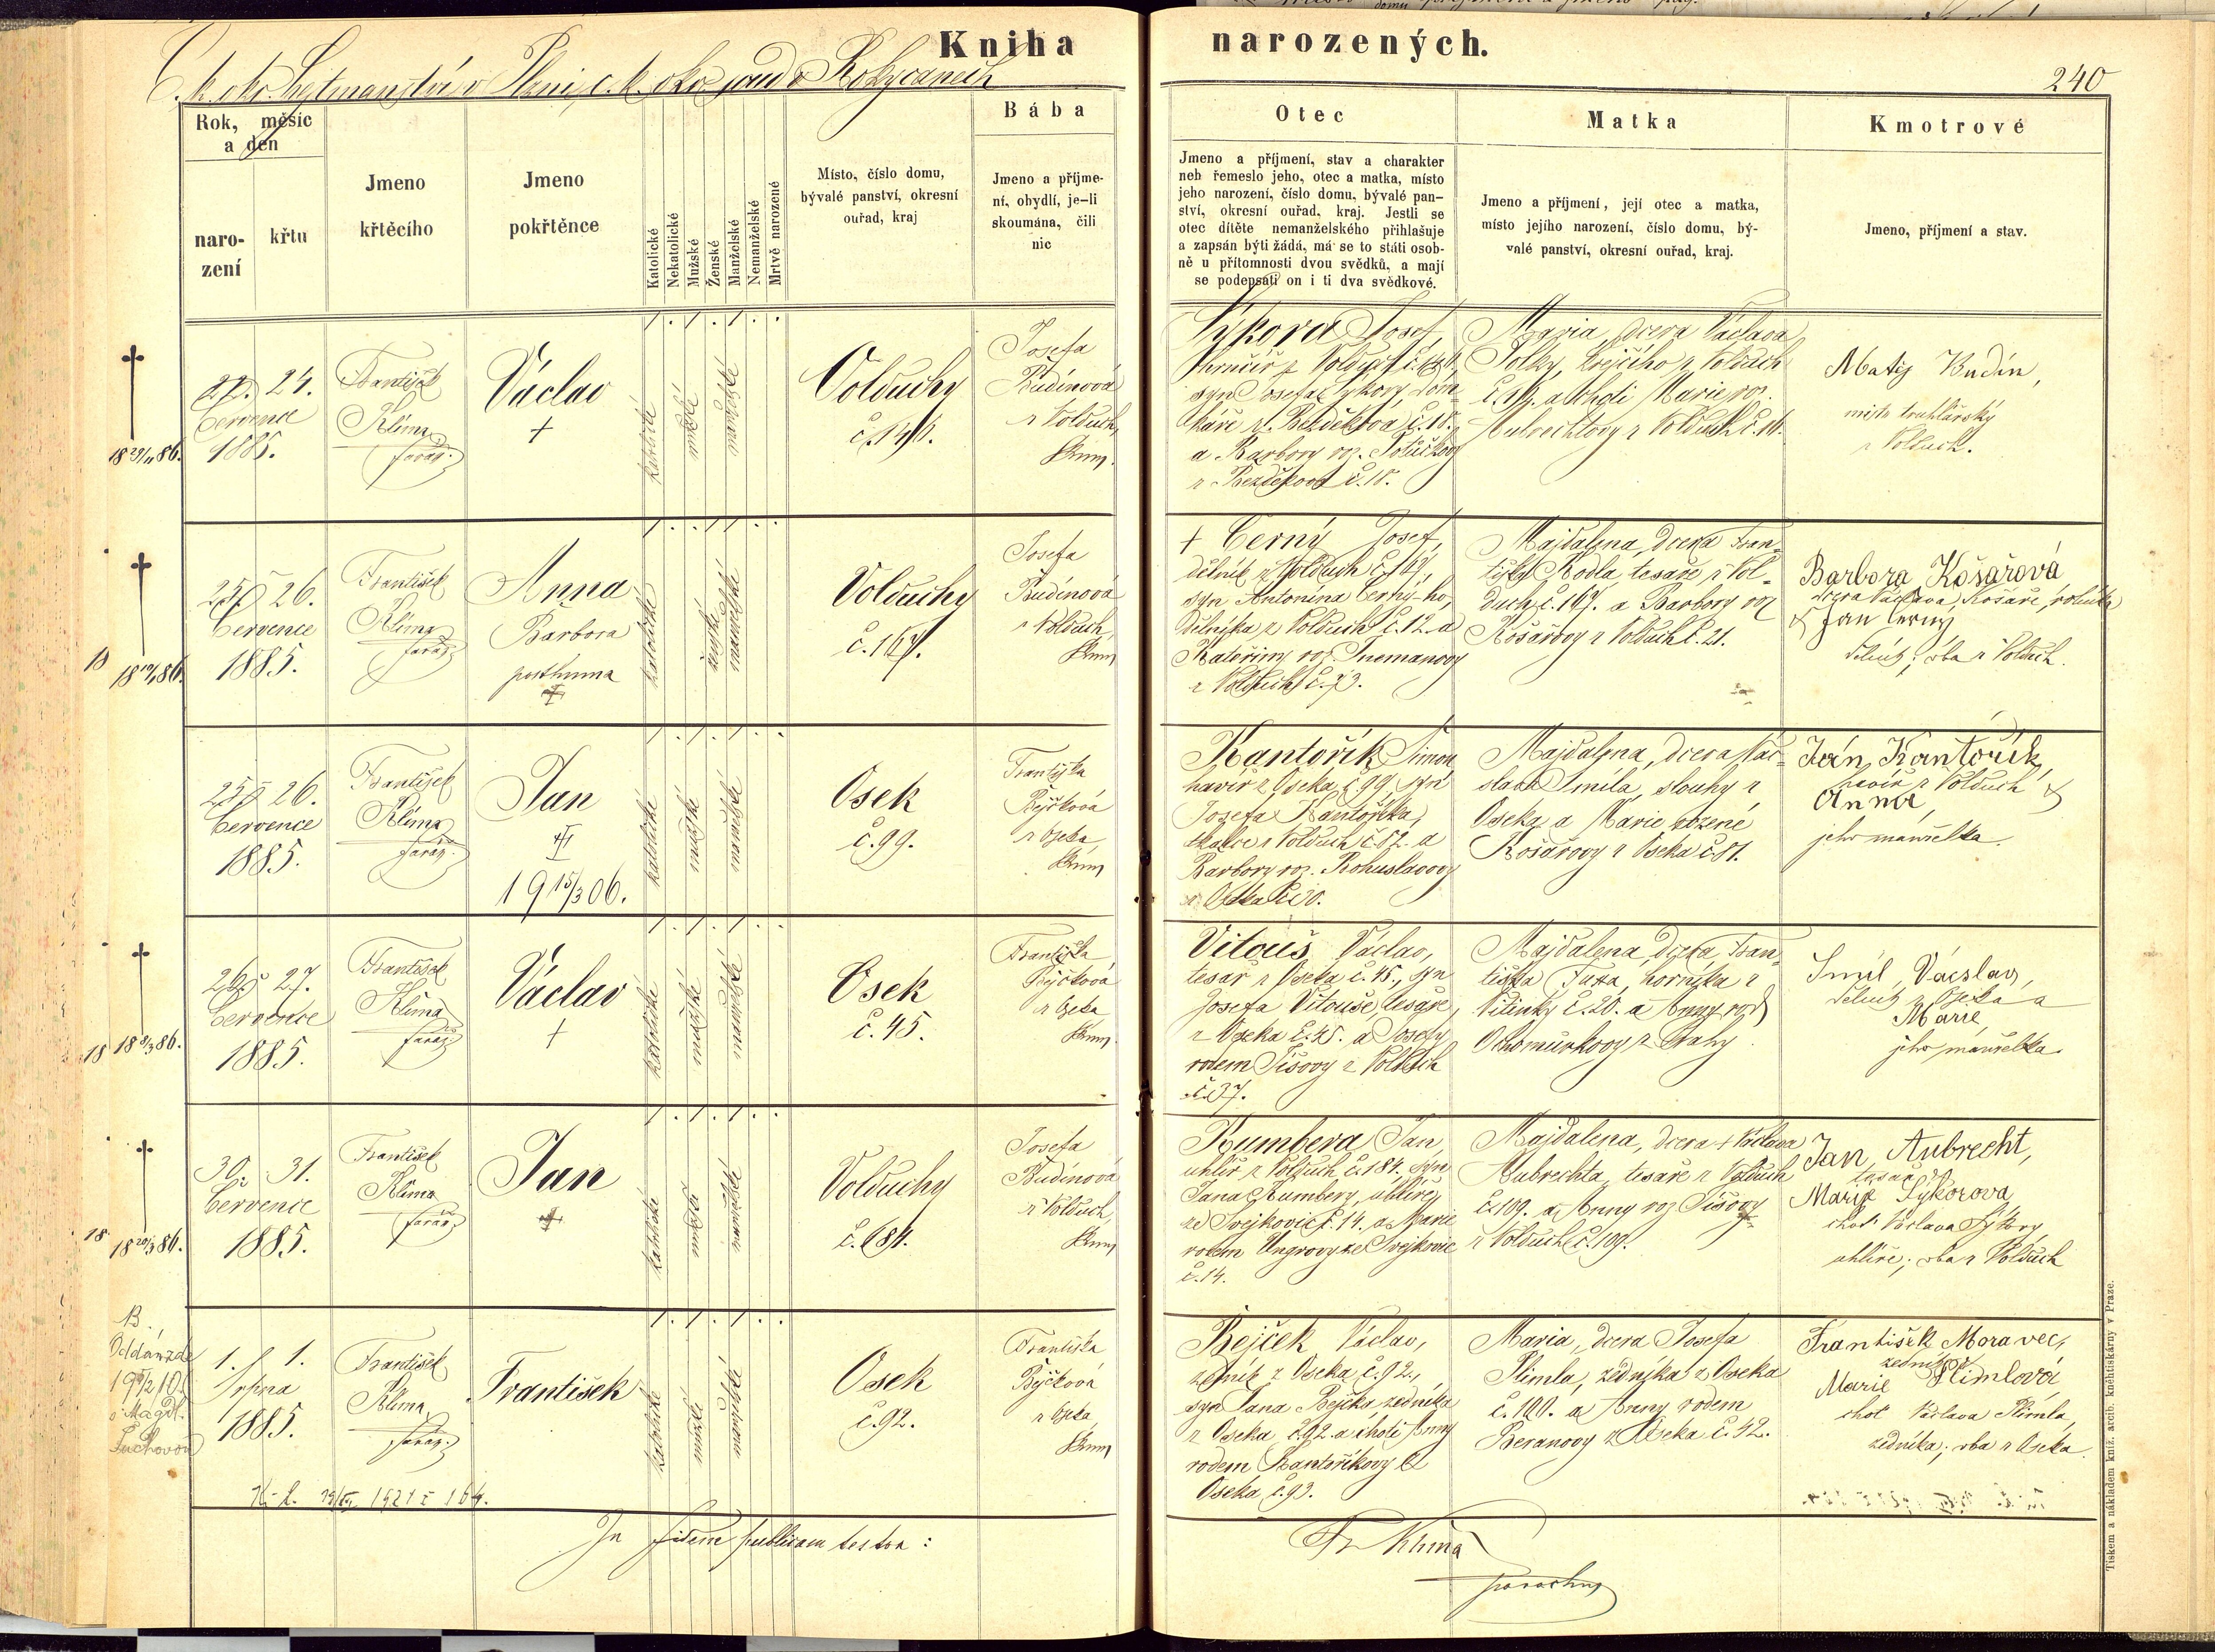 Kniha narozených.
C. k. okr. hejtmanství v Plzni, c. k. okr. soud v Rokycanech
240
Rok, měsíc
a den
naro-
zení
křtu
Jmeno
křtěcího
Jmeno
pokřtěnce
Katolické
Nekatolické
Mužské
Ženské
Manželské
Nemanželské
Mrtvě narozené
Místo, číslo domu,
bývalé panství, okresní
ouřad, kraj
Bába
Jmeno a příjme-
ní, obydlí, je-li
skoumána, čili
nic
Otec
Jmeno a příjmení, stav a charakter
neb řemeslo jeho, otec a matka, místo
jeho narození, číslo domu, bývalé pan-
ství, okresní ouřad, kraj. Jestli se
otec dítěte nemanželského přihlašuje
a zapsán býti žádá, má se to státi osob-
ně u přítomnosti dvou svědků, a mají
se podepsati on i ti dva svědkové.
Matka
Jmeno a příjmení, její otec a matka,
místo jejího narození, číslo domu, bý-
valé panství, okresní ouřad, kraj.
Kmotrové
Jmeno, příjmení a stav.
24.
července
1885.
František
Klíma
farář
Václav
†
katolické
mužské
manželské
Volduchy
Josefa
Budínová
z Volduch
zkoum.
Sýkora Josef,
syn Josefa Sýkory, dom-
káře z Bezděkova č. 18.
a Barbory roz.
z Bezděkova č. 18.
Maria, dcera Václava
krejčího z Volduch
a choti Marie roz.
Aubrechtovy z Volduch
Matěj Budín,
mistr truhlářský
z Volduch.
25. 26.
července
1885.
František
Klíma
farář
Anna
Barbora
posthuma
katolické
ženské
manželské
Volduchy
č. 167.
Josefa
Budínová
z Volduch
zkoum.
† Černý Josef,
dělník z Volduch č. 167,
syn Antonína Černého,
dělníka z Volduch č. 12. a
Kateřiny roz.
z Volduch č. 73.
Majdalena, dcera Fran-
tiška Kodla, tesaře z Vol-
duch č. 167. a Barbory roz.
Košařovy z Volduch č. 21.
Barbora Košařová
dcera Václava Košaře, rolníka
& Jan Černý
dělník; oba z Volduch.
25. 26.
července
1885.
František
Klíma
farář
Jan
19 15/3 06.
katolické
mužské
manželské
Osek
č. 99.
Františka
Bejčková
z Oseka
zkoum.
Kantořík Šimon
havíř z Oseka č. 99, syn
Josefa Kantoříka,
z Volduch č. 82. a
Barbory roz. Bohuslavovy
z Oseka
Majdalena, dcera Vác-
slava Smíla, slouhy z
Oseka a Marie rozené
Košařovy z Oseka č. 81.
Jan Kantořík,
havíř z Volduch &
Anna,
jeho manželka.
26. 27.
července
1885.
František
Klíma
farář
Václav
†
katolické
mužské
manželské
Osek
č. 45.
Františka
Bejčková
z Oseka
zkoum.
Vitouš Václav,
tesař z Oseka č. 45., syn
Josefa Vitouše, tesaře
z Oseka č. 45. a Josefy
rodem Šišovy z Volduch
č. 37.
Majdalena, dcera Fran-
tiška, horníka z
Vitinky č. 20. a Anny rod.
z Prahy.
Smíl, Václav,
dělník z Oseka a
Marie,
jeho manželka.
30. 31.
července
1885.
František
Klíma
farář
Jan
katolické
mužské
manželské
Volduchy
č. 184.
Josefa
Budínová
z Volduch
zkoum.
Kumbera Jan
uhlíř z Volduch č. 184. syn
Jana Kumbery, uhlíře
ze Svejkovic č. 14. a Marie
rodem Ungrovy ze Svejkovic
č. 14.
Majdalena, dcera † Václava
Aubrechta, tesaře z Volduch
č. 109. a Anny roz. Šišovy
z Volduch č. 109.
Jan Aubrecht,
tesař &
Marie Sýkorova,
choť Václava Sýkory,
uhlíře; oba z Volduch
B.
Oddán
1. 1.
srpna
1885.
František
Klíma
farář
František
katolické
mužské
manželské
Osek
č. 92.
Františka
Bejčková
z Oseka
zkoum.
Bejček Václav,
zedník z Oseka č. 92.,
syn Jana Bejčka zedníka
z Oseka č. 92. a choti Anny
rodem Kantoříkovy z
Oseka č. 93.
Maria, dcera Josefa
Šlimla, zedníka z Oseka
č. 100. a Anny rodem
Beranovy z Oseka č. 42.
František Moravec,
zedník &
Marie Šlimlová
choť Václava Šlimla,
zedníka; oba z Oseka.
In fidem publicam testor:
Fr. Klíma
parochus
Tiskem a nákladem kníž. arcib. knihtiskárny v Praze.